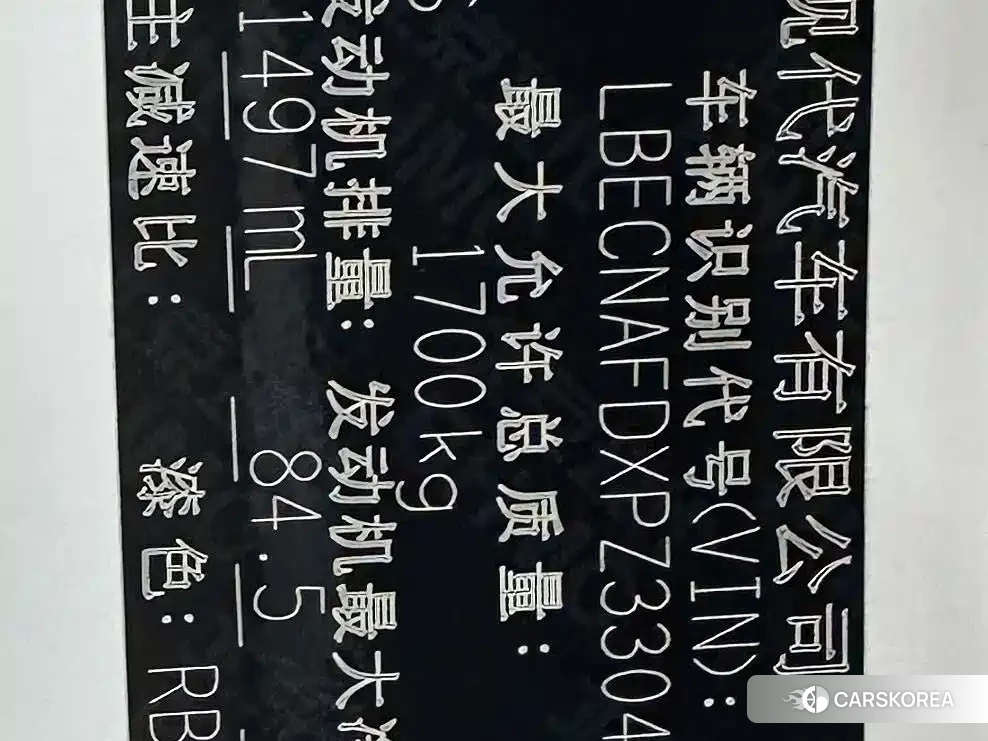 现代汽车有限公司
车辆识别代号(VIN):
LBECNAFDXPZ3304
最大允许总质量:
1700kg
发动机排量: 发动机最大净
1497mL 84.5
主减速比: 漆色: RB
CARSKOREA